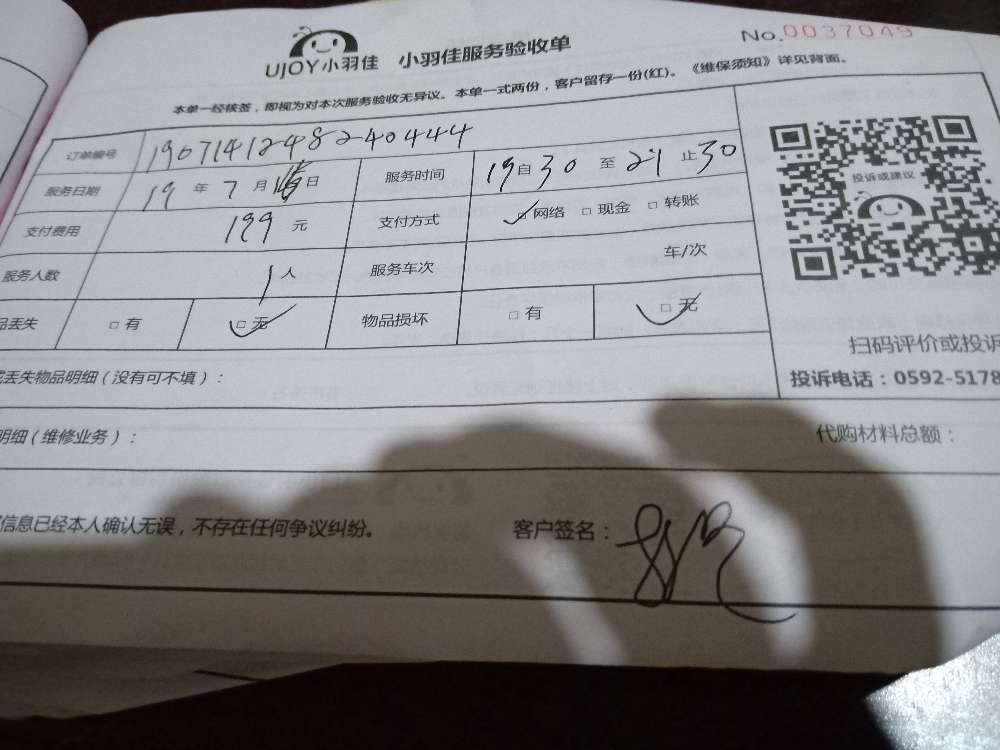 No.0037049
UJOY小羽佳 小羽佳服务验收单
本单一经核签，即视为对本次服务验收无异议。本单一式两份，客户留存一份(红)。《维保须知》详见背面。
订单编号 1907141248240444
服务日期 19 年 7 月 日 服务时间 19自30 至 21 止30
支付费用 199 元 支付方式 ☑网络 □现金 □转账
服务人数 1人 服务车次 车/次
品丢失 □有 ☑无 物品损坏 □有 ☑无
投诉或建议
扫码评价或投诉
投诉电话：0592-5178
丢失物品明细（没有可不填）：
明细（维修业务）： 代购材料总额：
信息已经本人确认无误，不存在任何争议纠纷。 客户签名：